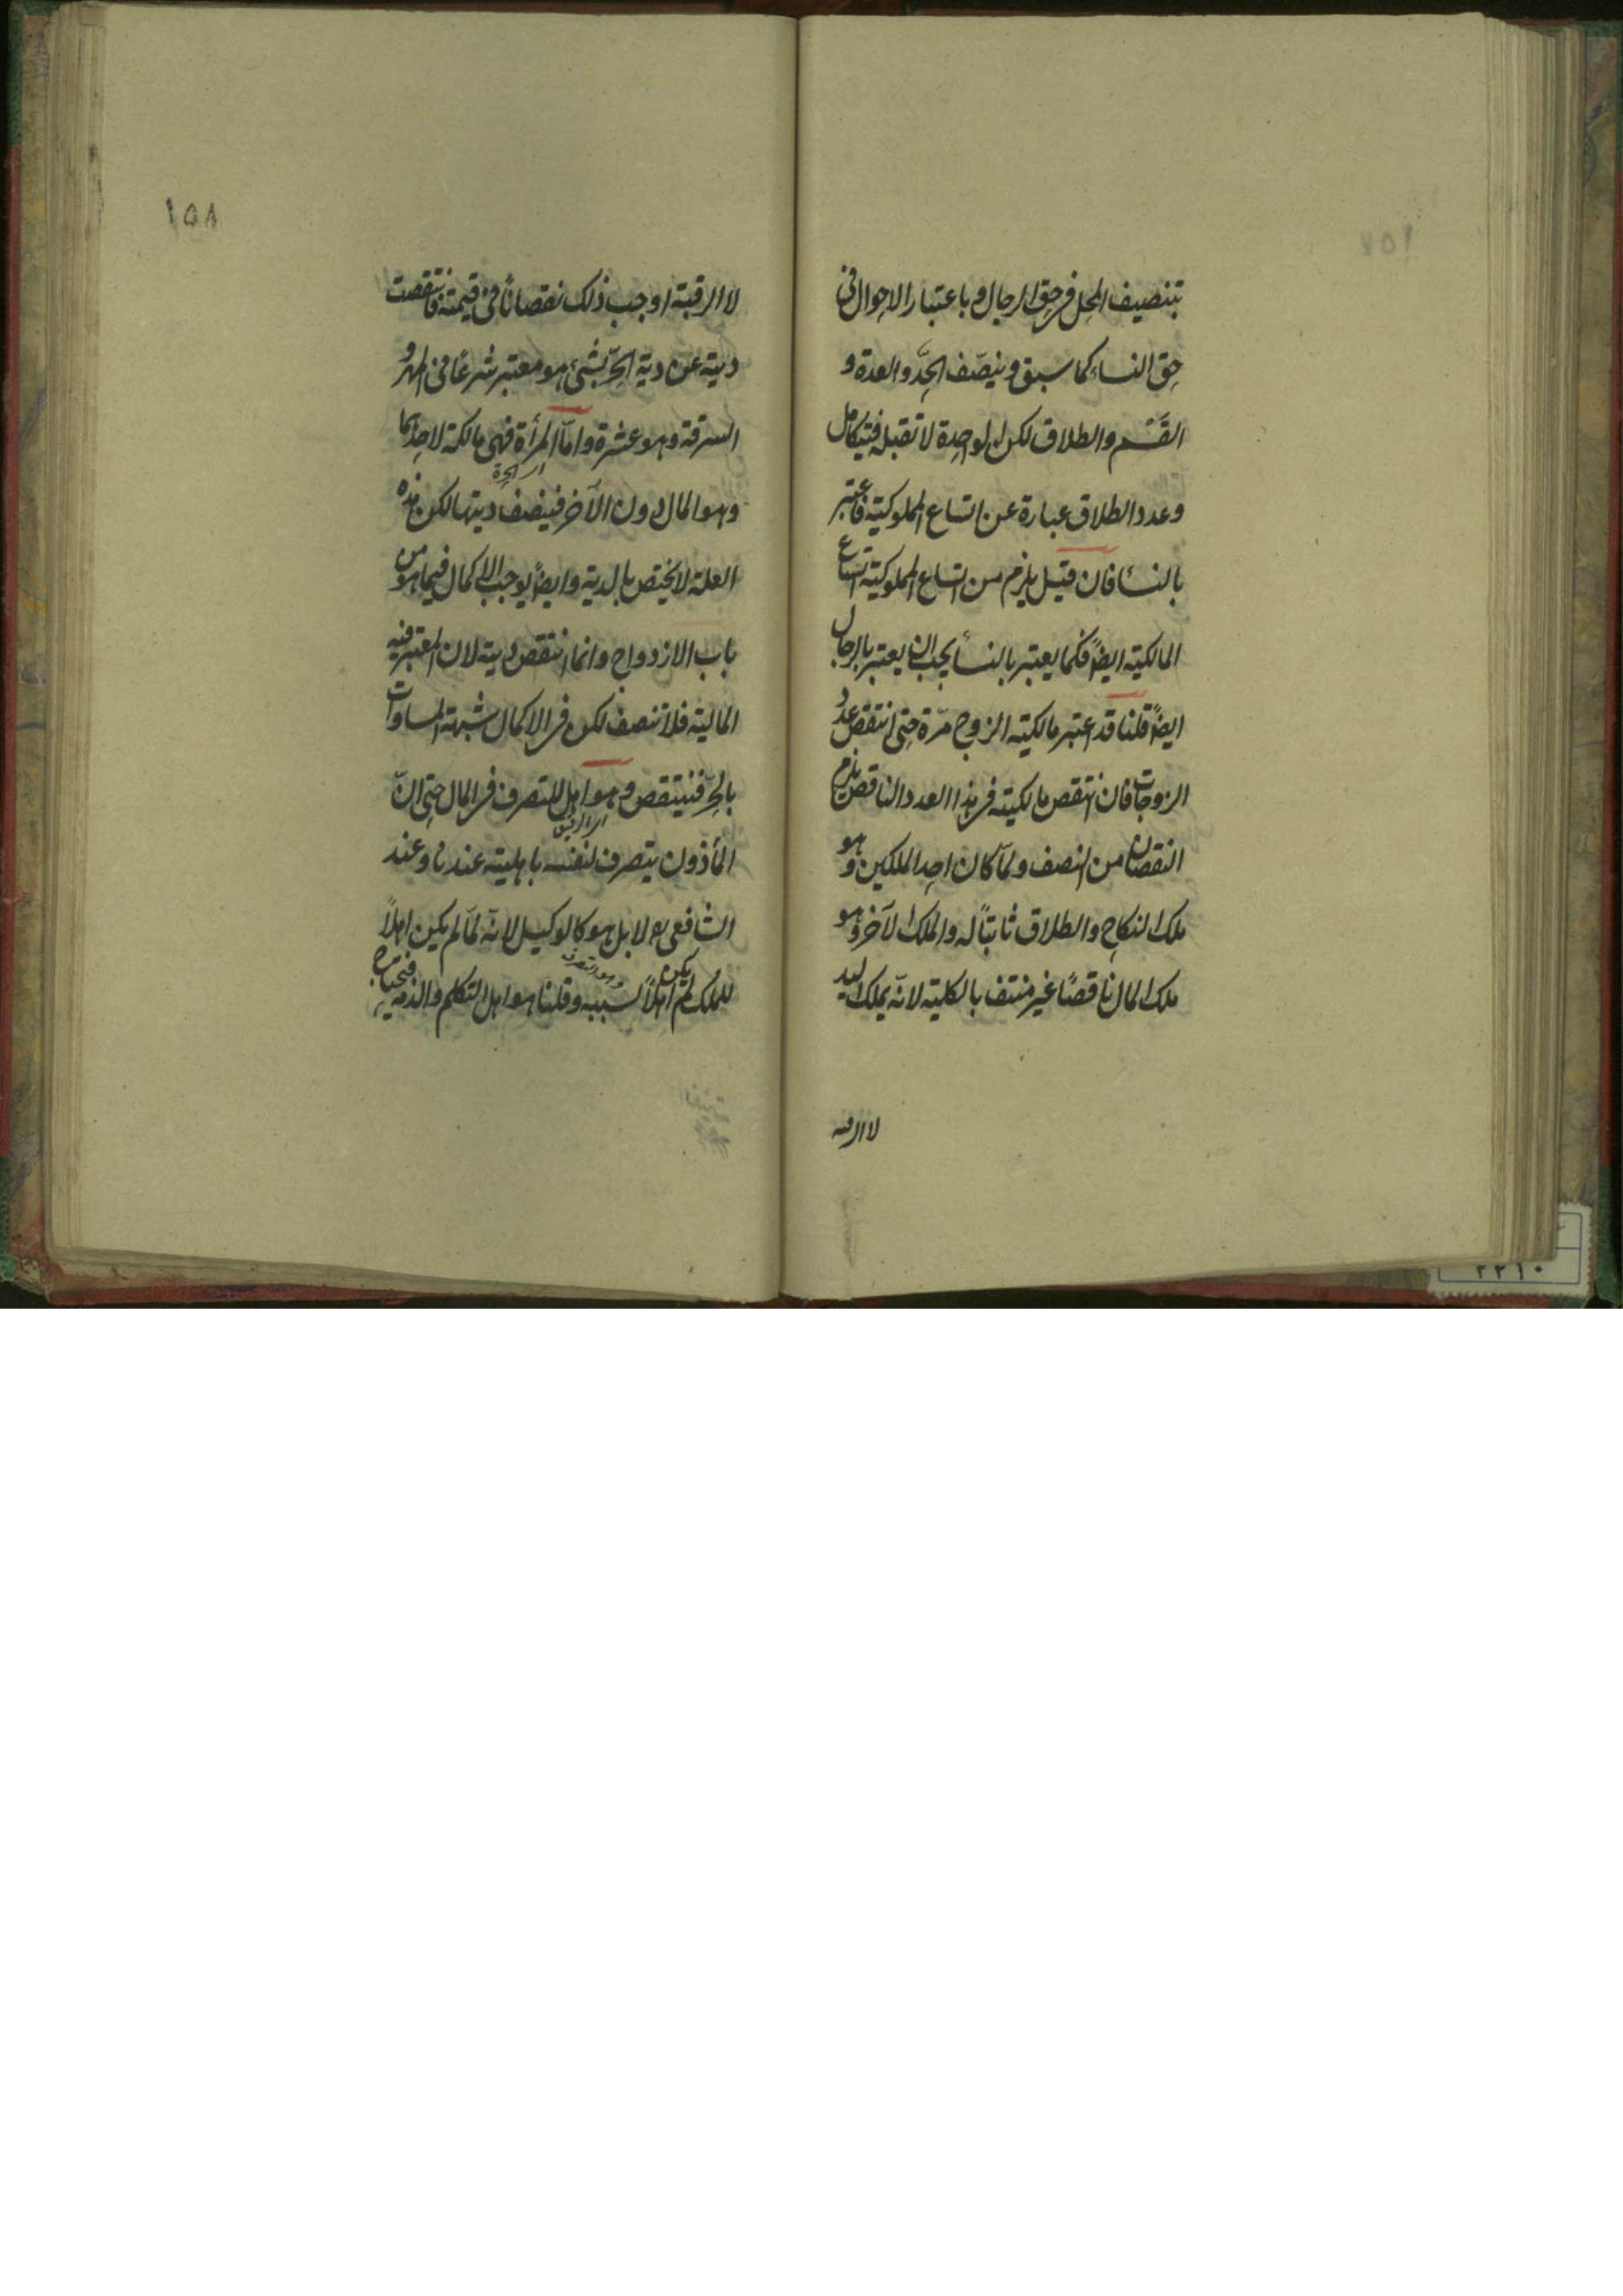 بتنصيف المحل فى حق الرجال و باعتبار الاحوال فى
حق النساء كما سبق و ينصّف الحدّ و العدة و
القَسْم و الطلاق لكن الواحدة لا تقبله فيتكامل
و عدد الطلاق عبارة عن اتساع المملوكية فاعتبر
بالنساء فان قيل يلزم من اتساع المملوكية اتساع
المالكية ايضًا فكما يعتبر بالنسأ يجب ان يعتبر بالرجال
ايضًا قلنا قد اعتبر مالكية الزوج مرّة حتى انتقص عدد
الزوجات فان انتقص مالكيته فى هذا العدد الناقص يلزم
النقصان من النصف و لمّا كان احد الملكين و هو
ملك النكاح و الطلاق ثابتًا له و الملك الآخر و هو
ملك المال ناقصًا غير منتف بالكلية لانّه يملك اليد
لا الرقبه
١٥٨
لا الرقبة اوجب ذلك نقصانًا فى قيمته فانتقصت
ديته عن دية الحرّ بشئ هو معتبر شرعًا فى المهر و
السرقة و هو عشرة و امّا المرأة فهى مالكة لاحدهما
اى الحرة
و هو المال دون الآخر فينصف ديتها لكن هذه
العلة لا يختص بالدية و ايضًا يوجب الاكمال فيما هو من
باب الازدواج و انما انتقص ديته لان المعتبر فيه
المالية فلا تنصف لكن فى الاكمال شبهة المساوات
بالحرّ فينتقص و هو اهل للتصرف فى المال حتى انّ
اى الرقيق
المأذون يتصرف لنفسه باهليته عندنا و عند
الشافعى لا بل هو كالوكيل لانّه لمّا لم يكن اهلًا
للملك لم يكن اهلًا لسببه و قلنا هو اهل التكلم و الذمة فيحتاج
و هو التصرف
٢٢١٠